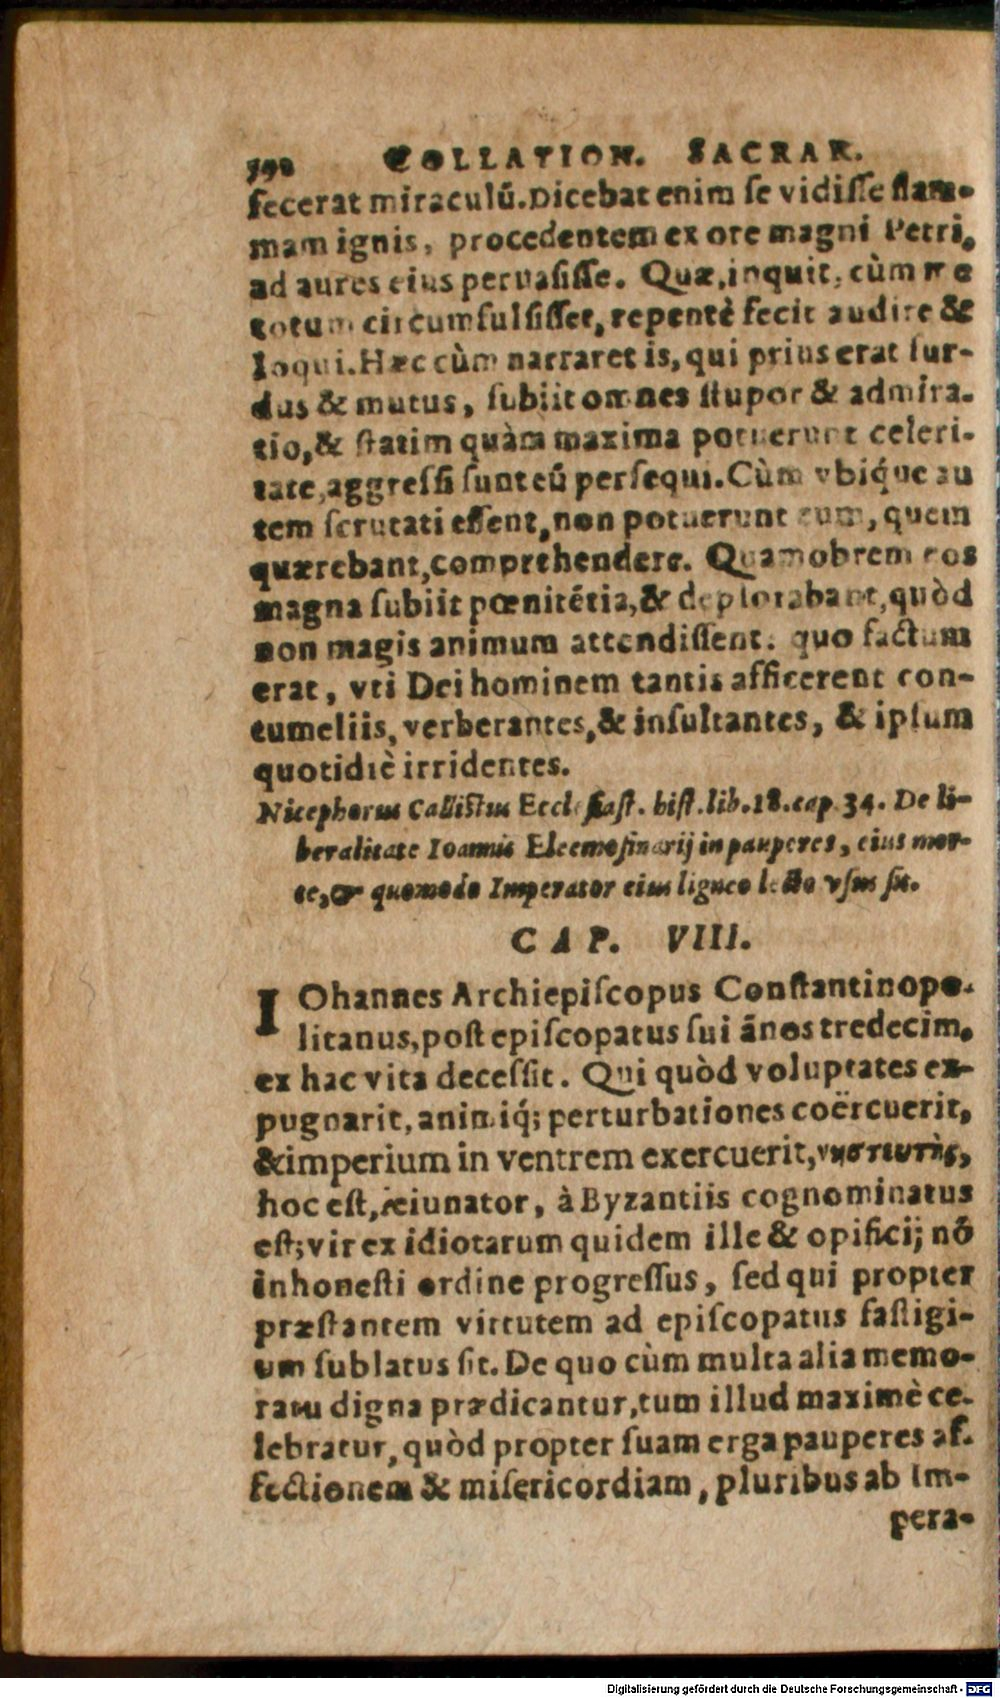 COLLATION. SACRAR.
fecerat miraculũ. Dicebat enim se vidisse flam-
mam ignis, procedentem ex ore magni Petri,
ad aures eius peruasisse. Quæ, inquit, cùm me
totum circumfulsisset, repentè fecit audire &
loqui. Hæc cùm narraret is, qui prius erat sur-
dus & mutus, subiit omnes stupor & admira-
tio, & statim quàm maxima potuerunt celeri-
tate, aggressi sunt eũ persequi. Cùm vbiq́ue au
tem scrutati essent, non potuerunt eum, quem
quærebant, comprehendere. Quamobrem eos
magna subiit pœnitẽtia, & deplorabant, quòd
non magis animum attendissent: quo factum
erat, vti Dei hominem tantis afficerent con-
tumeliis, verberantes, & insultantes, & ipsum
quotidiè irridentes.
Nicephorus Callistus Ecclesiast. hist. lib. 18. cap. 34. De li-
beralitate Ioannis Eleemosinarij in pauperes, eius mor-
te, & quomodo Imperator eius ligneo lecto vsus sit.
CAP. VIII.
IOhannes Archiepiscopus Constantinopo-
litanus, post episcopatus sui ãnos tredecim,
ex hac vita decessit. Qui quòd voluptates ex-
pugnarit, animiq́; perturbationes coërcuerit,
& imperium in ventrem exercuerit, νηστευτὴς,
hoc est, ieiunator, à Byzantiis cognominatus
est; vir ex idiotarum quidem ille & opificij nõ
inhonesti ordine progressus, sed qui propter
præstantem virtutem ad episcopatus fastigi-
um sublatus sit. De quo cùm multa alia memo-
ratu digna prædicantur, tum illud maximè ce-
lebratur, quòd propter suam erga pauperes af-
fectionem & misericordiam, pluribus ab Im-
pera-
Digitalisierung gefördert durch die Deutsche Forschungsgemeinschaft - DFG